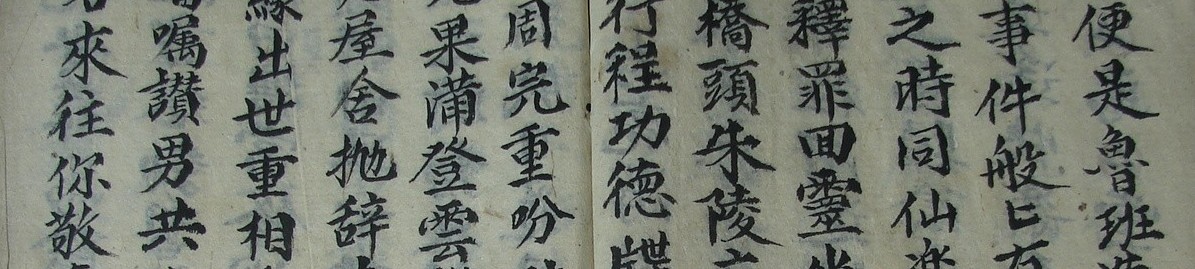 便是魯班
事件般㠯有
之時同仙樂
釋罪回靈
橋頭朱陵
行程功德牒
周完重吩
果蒲登雲
屋舍抛辞
緣出世重相
嘱讃男共
來往你敬